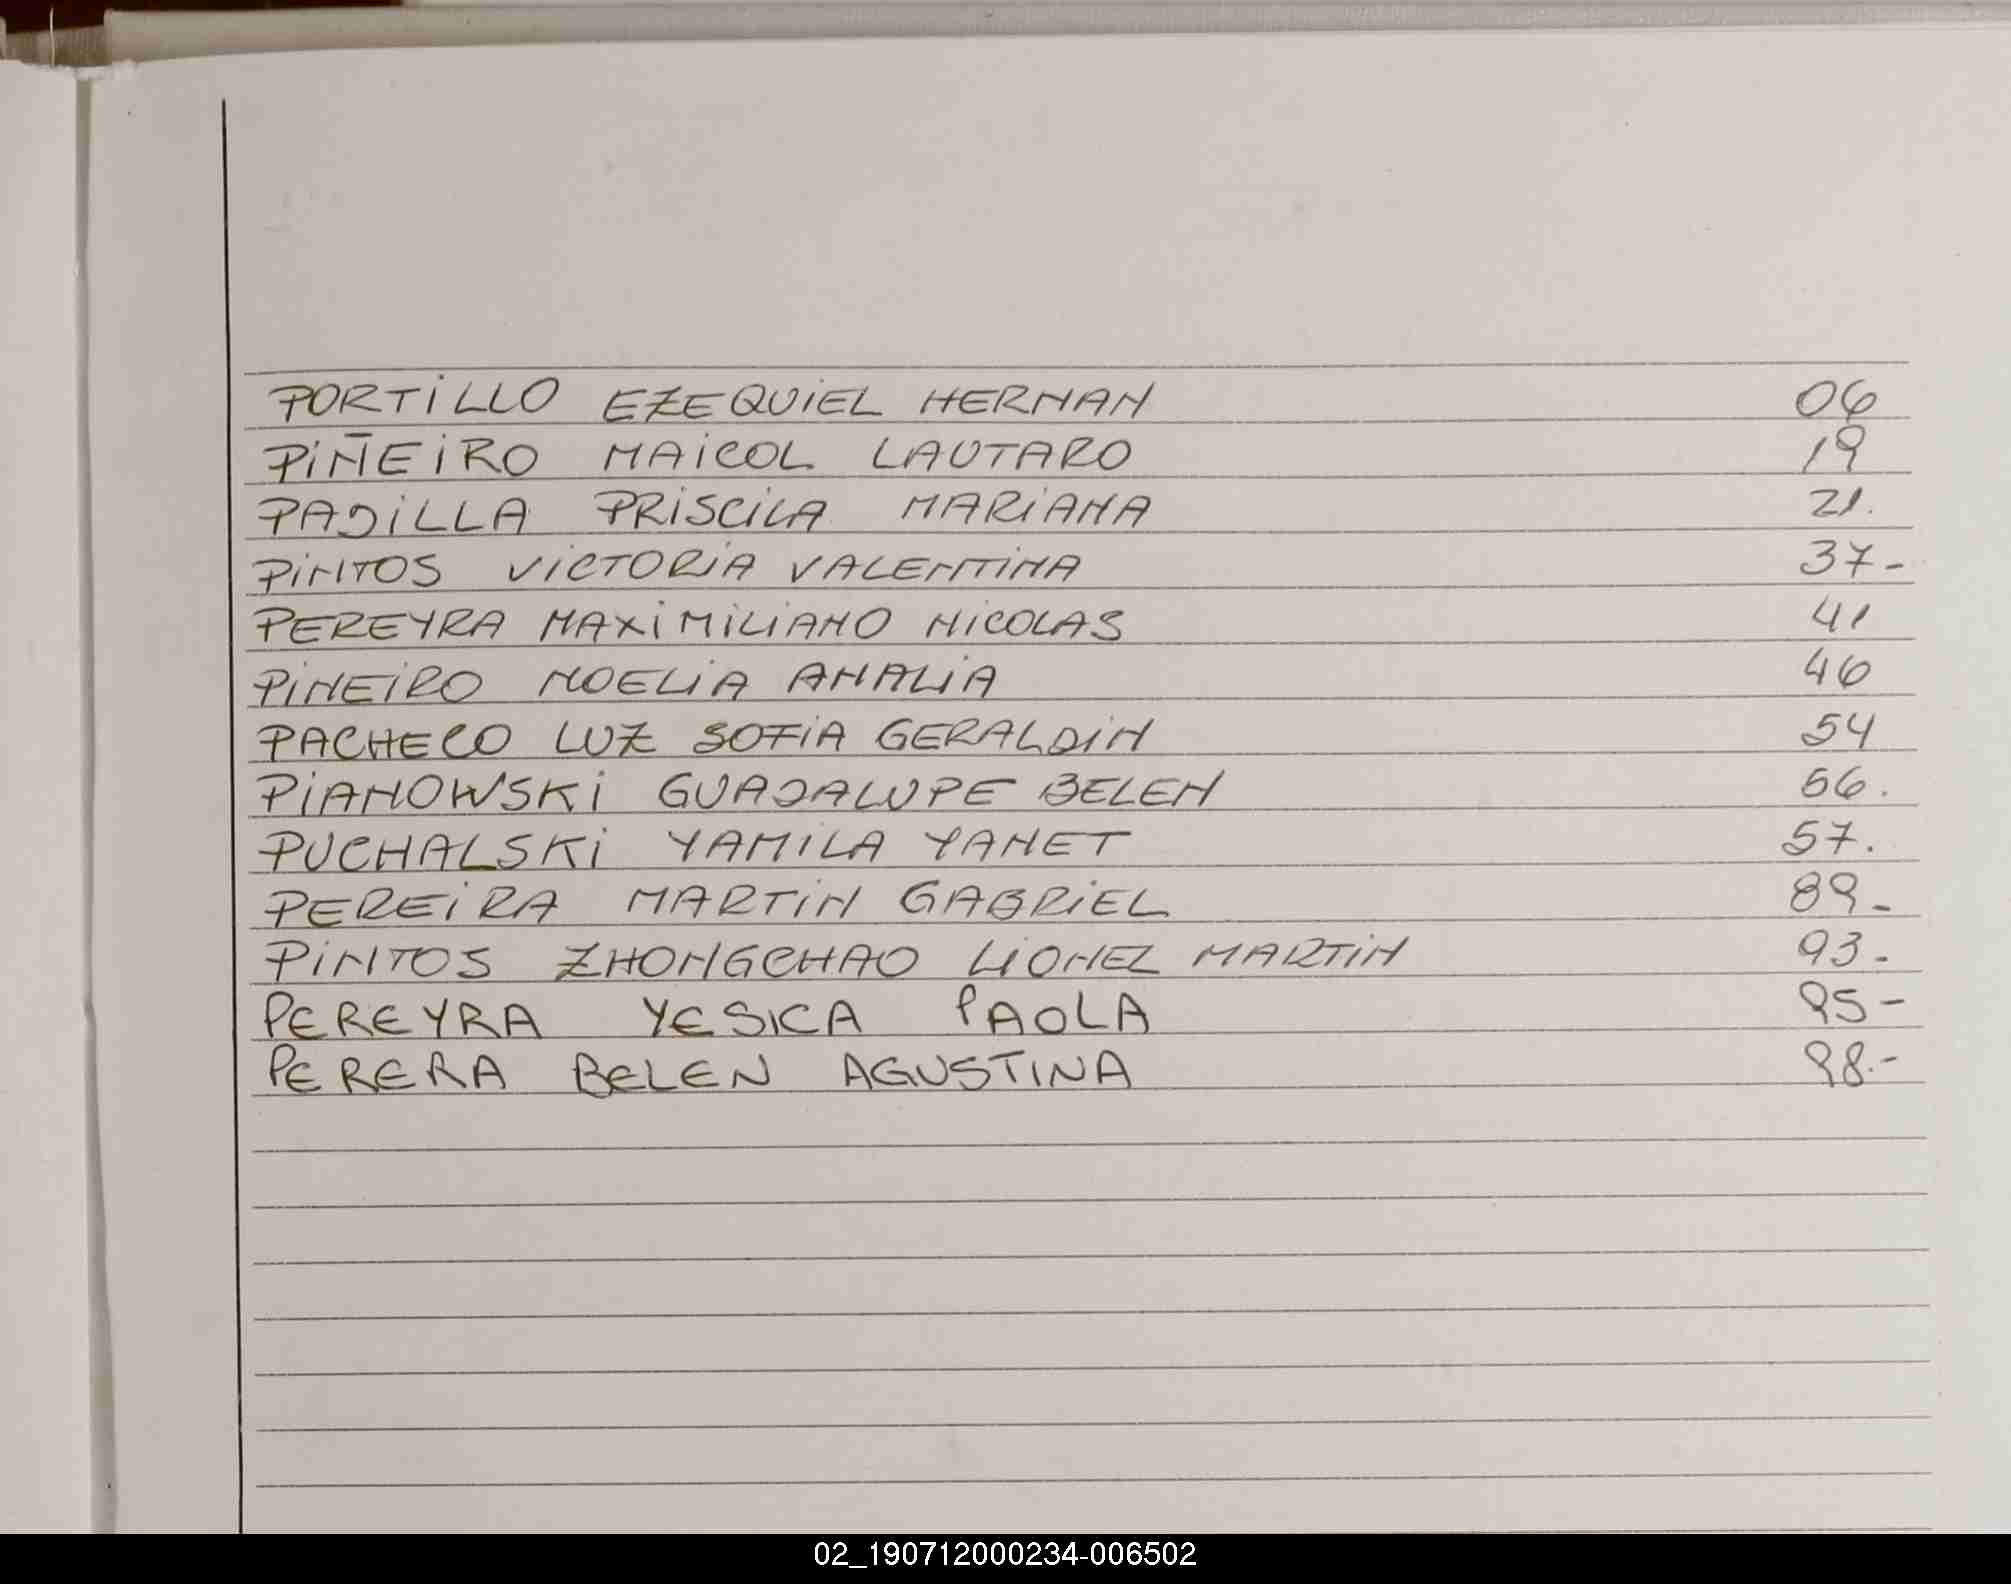 PORTILLO EZEQUIEL HERNAN 06
PIÑEIRO MAICOL LAUTARO 19
PADILLA PRISCILA MARIANA 21.
PINTOS VICTORIA VALENTINA 37-
PEREYRA MAXIMILIANO NICOLAS 41
PINEIRO NOELIA ANALIA 46
PACHECO LUZ SOFIA GERALDIN 54
PIANOWSKI GUADALUPE BELEN 56.
PUCHALSKI YAMILA YANET 57.
PEREIRA MARTIN GABRIEL 89-
PINTOS ZHONGCHAO LIONEL MARTIN 93-
PEREYRA YESICA PAOLA 95-
PERERA BELEN AGUSTINA 98.-
02_190712000234-006502